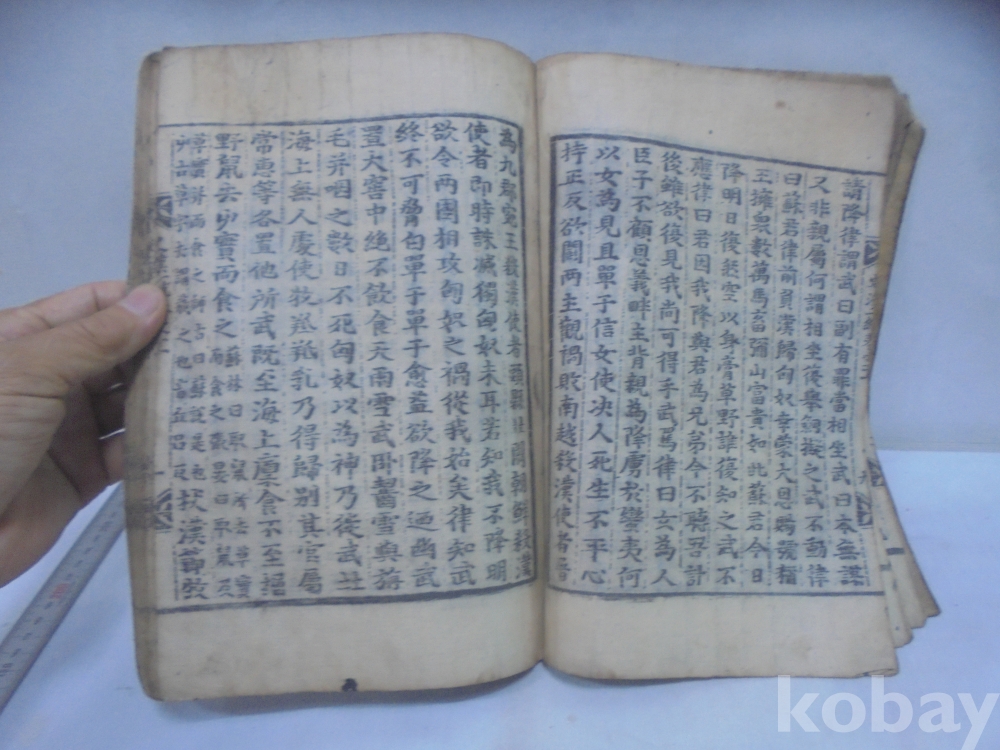 請降律謂武曰副有罪當相坐武曰本無謀
又非親屬何謂相坐復舉劍擬之武不動律
曰蘇君律前負漢歸匈奴幸蒙大恩賜號稱
王擁衆數萬馬畜彌山富貴如此蘇君今日
降明日復然空以身膏草野誰復知之武不
應律曰君因我降與君為兄弟今不聽吾計
後雖欲復見我尚可得乎武罵律曰女為人
臣子不顧恩義畔主背親為降虜於蠻夷何
以女為見且單于信女使決人死生不平心
持正反欲鬪兩主觀禍敗南越殺漢使者屠
為九郡宛王殺漢使者頭縣北闕朝鮮殺漢
使者即時誅滅獨匈奴未耳若知我不降明
欲令兩國相攻匈奴之禍從我始矣律知武
終不可脅白單于單于愈益欲降之迺幽武
置大窖中絶不飲食天雨雪武卧齧雪與旃
毛并咽之數日不死匈奴以為神乃徙武北
海上無人處使牧羝羝乳乃得歸別其官屬
常惠等各置他所武既至海上廩食不至掘
野鼠去屮實而食之
蘇林曰取鼠所去草實
而食之張晏曰取鼠及
草實并而食之師古曰蘇說是也
屮古草字去謂藏之也
杖漢節牧
kobay